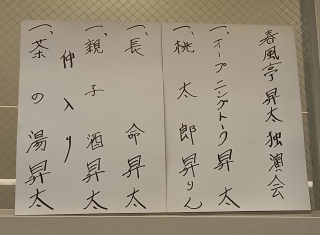 春風亭昇太独演会
一、オープニングトーク 昇太
一、桃太郎 昇りん
一、長命 昇太
一、親子酒 昇太
仲入り
一、茶の湯 昇太